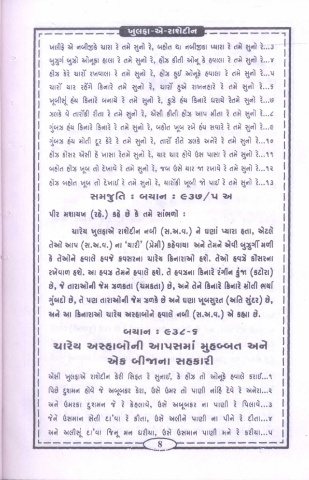 ખુલફા-એ-રાશેદીન
ખલીફે એ નબીજીકે ચારા રે તમે સુનો રે, બહોત થા નબીજીકા પ્યારા રે તમે સુનો રે...૩
બુઝુર્ગ બુઝો ઓનૂકા હાલા રે તમે સુનો રે, હૌઝ કીતી ઓનૂ કે હવાલા રે તમે સુનો રે...૪
હૌઝ કેરે ચારોં રખવાલા રે તમે સુનો રે, હૌઝ હુઈ ઓનૂકે હવાલા રે તમે સુનો રે...૫
ચારોં ચાર રહેંગે કિનારે તમે સુનો રે, ચારોં હુએ રાખનહારે રે તમે સુનો રે...૬
ખૂબીસૂં હંય કિનારે બનાવે રે તમે સુનો રે, કુઝે હંય કિનારે ધરાયે રેતમે સુનો રે...૭
ઝલકે વે તારોંકી રીતા રે તમે સુનો રે, એસી કીતી હૌઝ આપ મીતા રે તમે સુનો રે...૮
ગુંબઝ હંય કિનારે કિનારે રે તમે સુનો રે, બહોત ખૂબ રબે હંય સવારે રે તમે સુનો રે...૯
ગુંબઝ હંય મોતી દૂર કેરે રે તમે સુનો રે, તારોં રીતે ઝલકે અનેરે રે તમે સુનો રે...૧૦
હૌઝ કૌસર એસી હૈ ખાસા રેતમે સુનો રે, ચાર યાર હોવે ઉસ પાસા રે તમે સુનો રે...૧૧
બહોત હૌઝ ખૂબ તો દેખાવે રે તમે સુનો રે, જબ ઉસે ચાર જા રહાવે રે તમે સુનો રે...૧૨
હૌઝ બહોત ખૂબ તો દેખાઈ રે તમે સુનો રે, ચારોંકી ખૂબી જો પાઈ રે તમે સુનો રે...૧૩
સમજુતિ : બયાન : ૯૩૭/૫ અ
પીર મશાયખ (રહે.) કહે છે કે તમે સાંભળો :
ચારેય ખુલફાએ રાશેદીન નબી (સ.અ.વ.) ને ઘણાં પ્યારા હતા, એટલે
તેઓ આપ (સ.અ.વ.) ના 'યારી' (પ્રેમી) કહેવાયા અને તેમને એવી બુઝુર્ગી મળી
કે તેઓને હવાલે હવઝે કવસરના ચારેય કિનારાઓ હશે. તેઓ હવઝે કૌસરના
રખેવાળ હશે. આ હવઝ તેમને હવાલે હશે. તે હવઝના કિનારે રંગીન કુંજા (કટોરા)
છે, જે તારાઓની જેમ ઝળકતા (ચમકતા) છે, અને તેને કિનારે કિનારે મોતી ભર્યા
ગુંબદો છે, તે પણ તારાઓની જેમ ઝળકે છે અને ઘણા ખૂબસૂરત (અતિ સુંદર) છે,
અને આ કિનારાઓ ચારેય અસ્હાબોને હવાલે નબી (સ.અ.વ.) એ કહ્યા છે.
બયાન : ૯૩૮-૬
ચારેય અસ્હાબોની આપસમાં મુહબ્બત અને
એક બીજાના સહકારી
એસી ખુલફાએ રાશેદીન કેટી સિફત રે સુનાઈ, કે હૌઝ તો ઓનૂકે હવાલે કરાઈ...૧
પિછે દુશમન હોવે જો અબૂબકર કેરા, ઉસે ઉમર તો પાણી નાંહિ દેવે રે અનેરા...૨
અને ઉમરકા દુશમન જો રે કેહલાવે, ઉસે અબૂબકર ના પાણી રે પિલાવે...૩
જેને ઉસમાન સેતી દા'વા રે કીતા, ઉસે અલીને પાણી ના પીને રે દીતા...૪
અને અલીસૂં દા'વા જિનૂ મન ધરીયા, ઉસે ઉસમાન પાણી મને રે કરીયા...૫
8